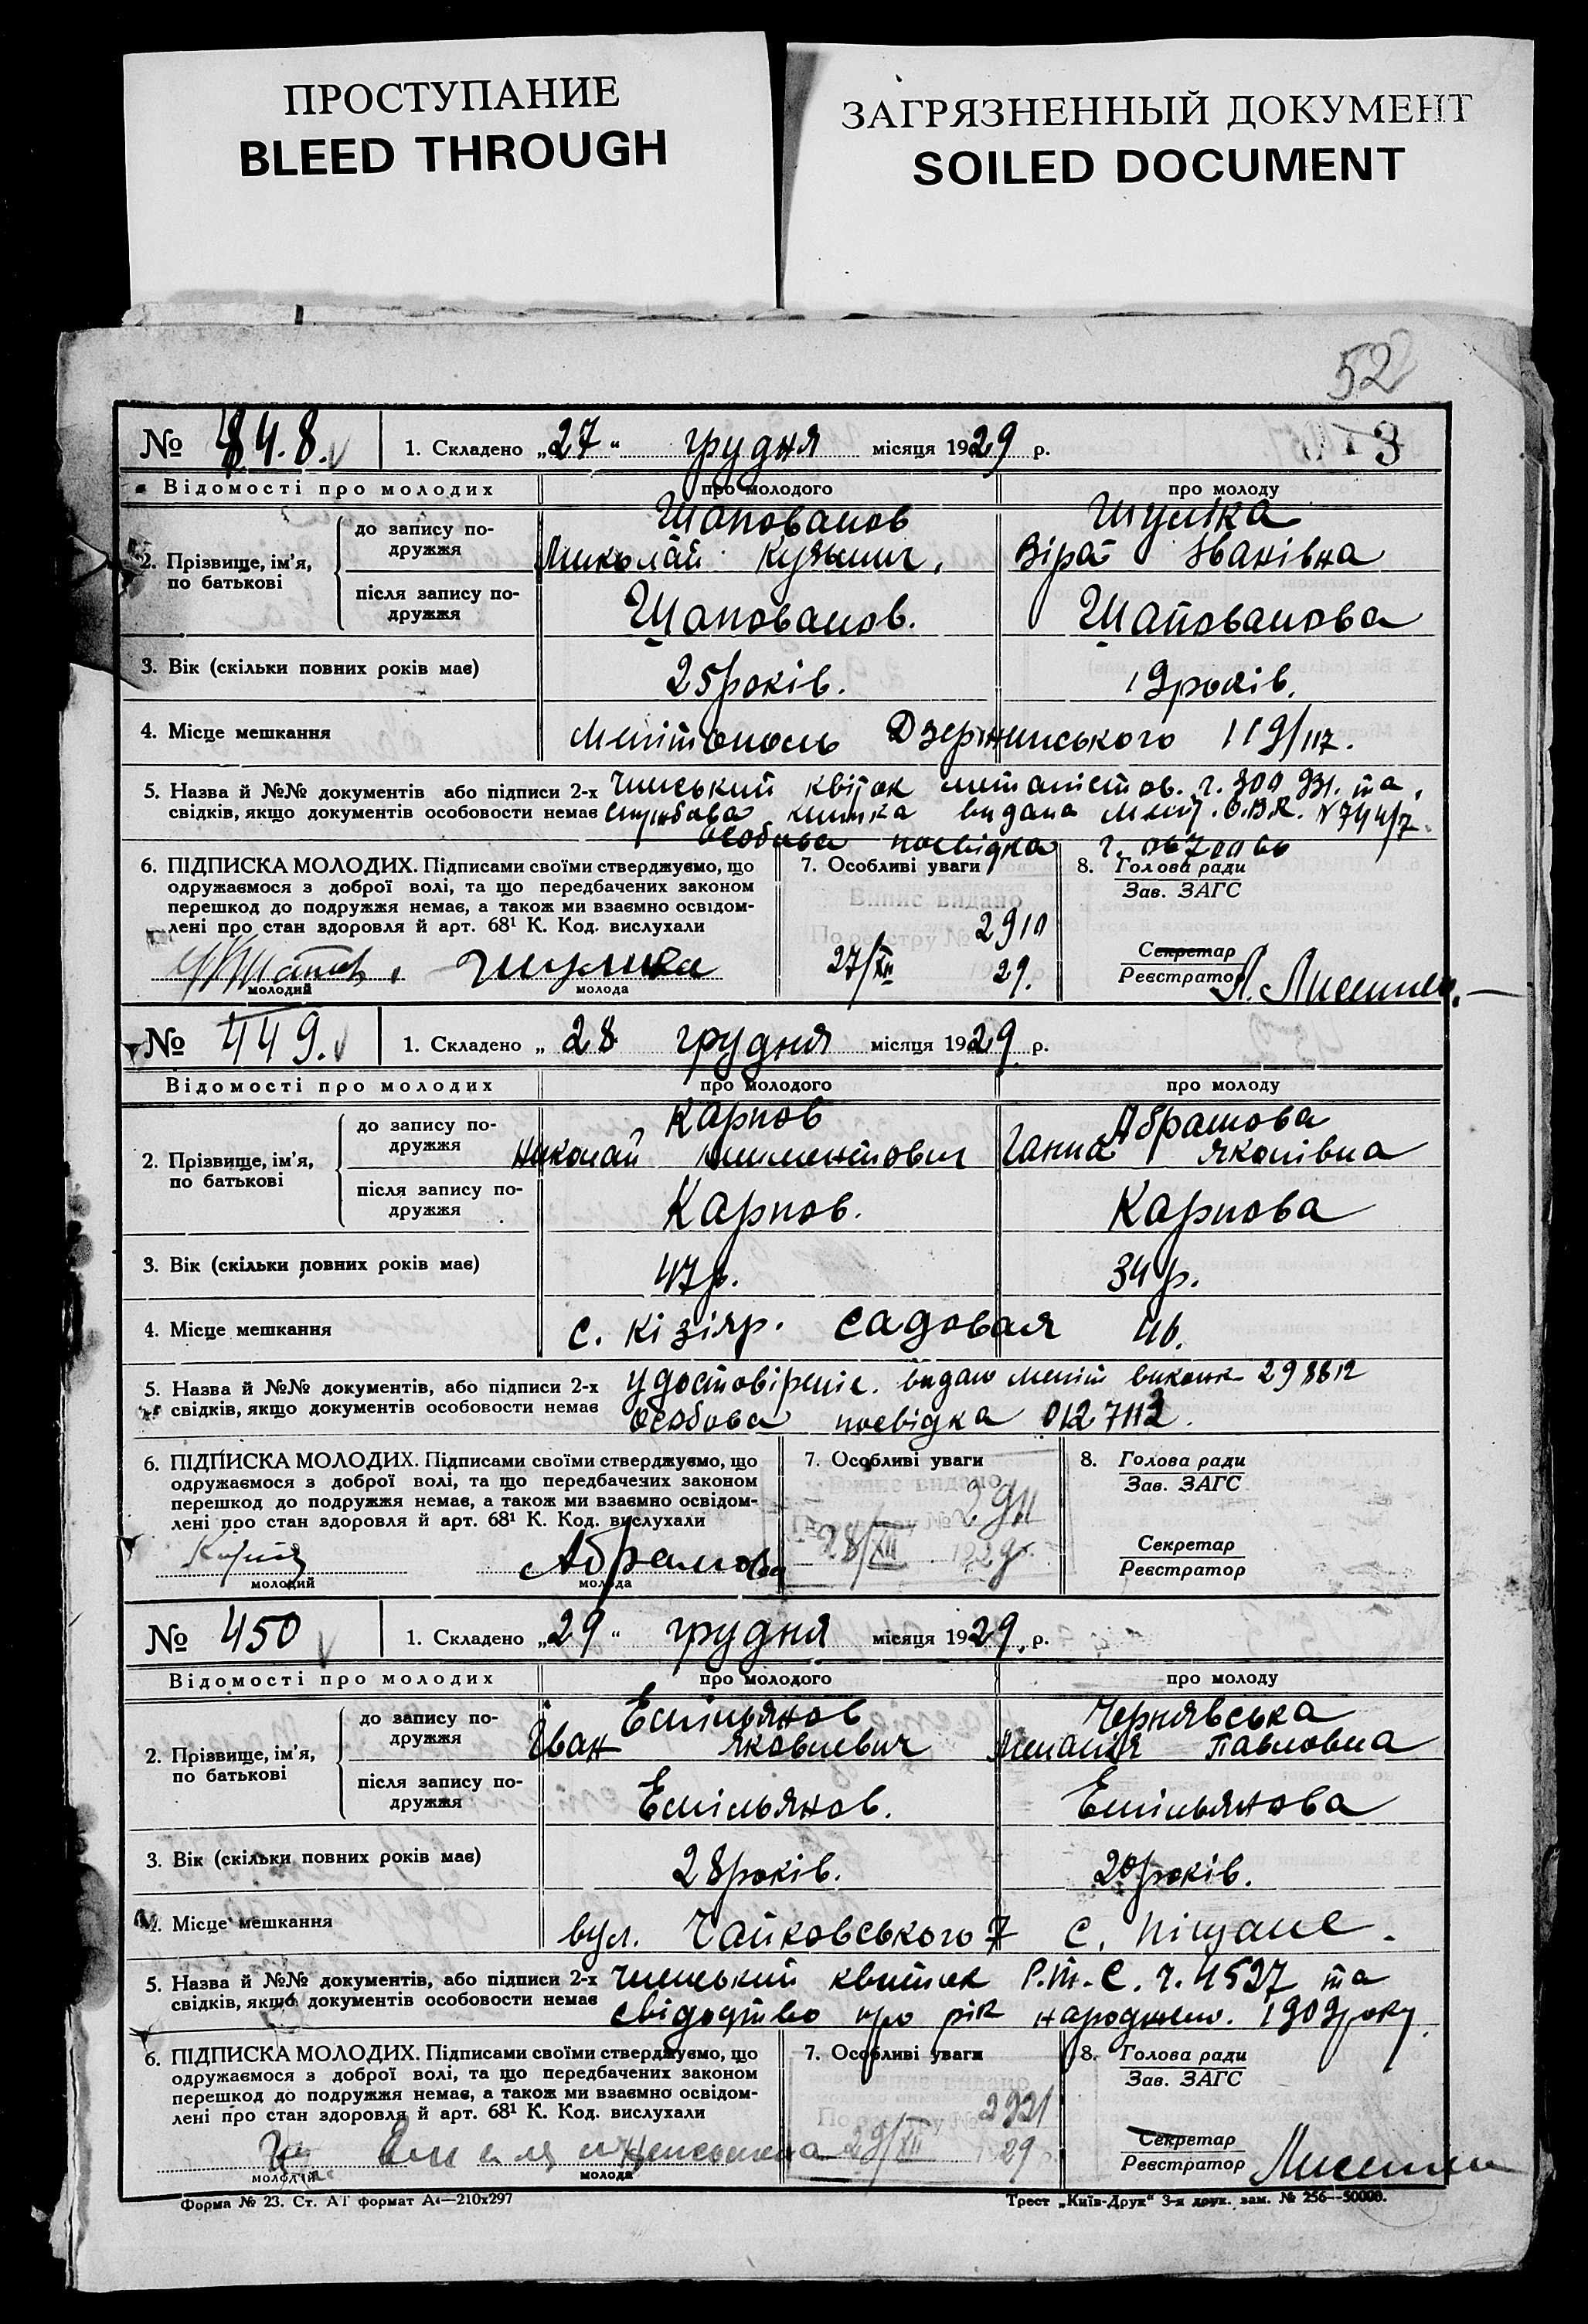 ПРОСТУПАНИЕ
BLEED THROUGH
ЗАГРЯЗНЕННЫЙ ДОКУМЕНТ
SOILED DOCUMENT
52
3
№ 448. 1. Складено „27“ грудня місяця 1929 р.
Відомості про молодих про молодого про молоду
2. Прізвище, ім'я, по батькові
до запису подружжя Шаповалов Шуліка
Миколай Кузьмич, Віра Іванівна
після запису подружжя Шаповалов. Шаповалова
3. Вік (скільки повних років має) 25 років. 19 років.
4. Місце мешкання Мелітополь Дзержинського 119/117.
5. Назва й №№ документів або підписи 2-х Членський квіток металістов. ч. та
свідків, якщо документів особовости немає службова книжка видана
особова посвідка ч.
6. ПІДПИСКА МОЛОДИХ. Підписами своїми стверджуємо, що
одружаємося з доброї волі, та що передбачених законом
перешкод до подружжя немає, а також ми взаємно освідом-
лені про стан здоровля й арт. 68¹ К. Код. вислухали
Шуліка
молодий молода
7. Особливі уваги
Випис видано
По реєстру № 2910
27/XII 1929.
8. Голова ради
Зав. ЗАГС
Секретар
Реєстратор
№ 449. 1. Складено „ 28 грудня місяця 1929 р.
Відомості про молодих про молодого про молоду
2. Прізвище, ім'я, по батькові
до запису подружжя Карпов Абрамова
Николай Климентович Ганна Яковівна
після запису подружжя Карпов. Карпова
3. Вік (скільки повних років має) 47 р. 34 р.
4. Місце мешкання с. Кізіяр. Садовая 46.
5. Назва й №№ документів, або підписи 2-х удостовіреніе. видано Меліт виконк
свідків, якщо документів особовости немає особова посвідка
6. ПІДПИСКА МОЛОДИХ. Підписами своїми стверджуємо, що
одружаємося з доброї волі, та що передбачених законом
перешкод до подружжя немає, а також ми взаємно освідом-
лені про стан здоровля й арт. 68¹ К. Код. вислухали
Абрамова
молодий молода
7. Особливі уваги
Випис видано
По реєстру № 2911
28/XII 1929 р.
8. Голова ради
Зав. ЗАГС
Секретар
Реєстратор
№ 450 1. Складено „29“ грудня місяця 1929. р.
Відомості про молодих про молодого про молоду
2. Прізвище, ім'я, по батькові
до запису подружжя Емільянов Чернявська
Іван Яковлевич Меланія Павловна
після запису подружжя Емільянов. Емільянова
3. Вік (скільки повних років має) 28 років. 20 років.
4. Місце мешкання вул. Чайковського 7 с. Піщане.
5. Назва й №№ документів, або підписи 2-х Членський квиток Р.т.С. ч. 4527 та
свідків, якщо документів особовости немає свідоцтво про рік народжено. 1909 року.
6. ПІДПИСКА МОЛОДИХ. Підписами своїми стверджуємо, що
одружаємося з доброї волі, та що передбачених законом
перешкод до подружжя немає, а також ми взаємно освідом-
лені про стан здоровля й арт. 68¹ К. Код. вислухали
молодий молода
7. Особливі уваги
По реєстру № 2921
29/XII 1929 р.
8. Голова ради
Зав. ЗАГС
Секретар
Реєстратор
Форма № 23. Ст. АГ формат А4—210х297
Трест „Київ-Друк“ 3-я друк. зам. № 256—50000.